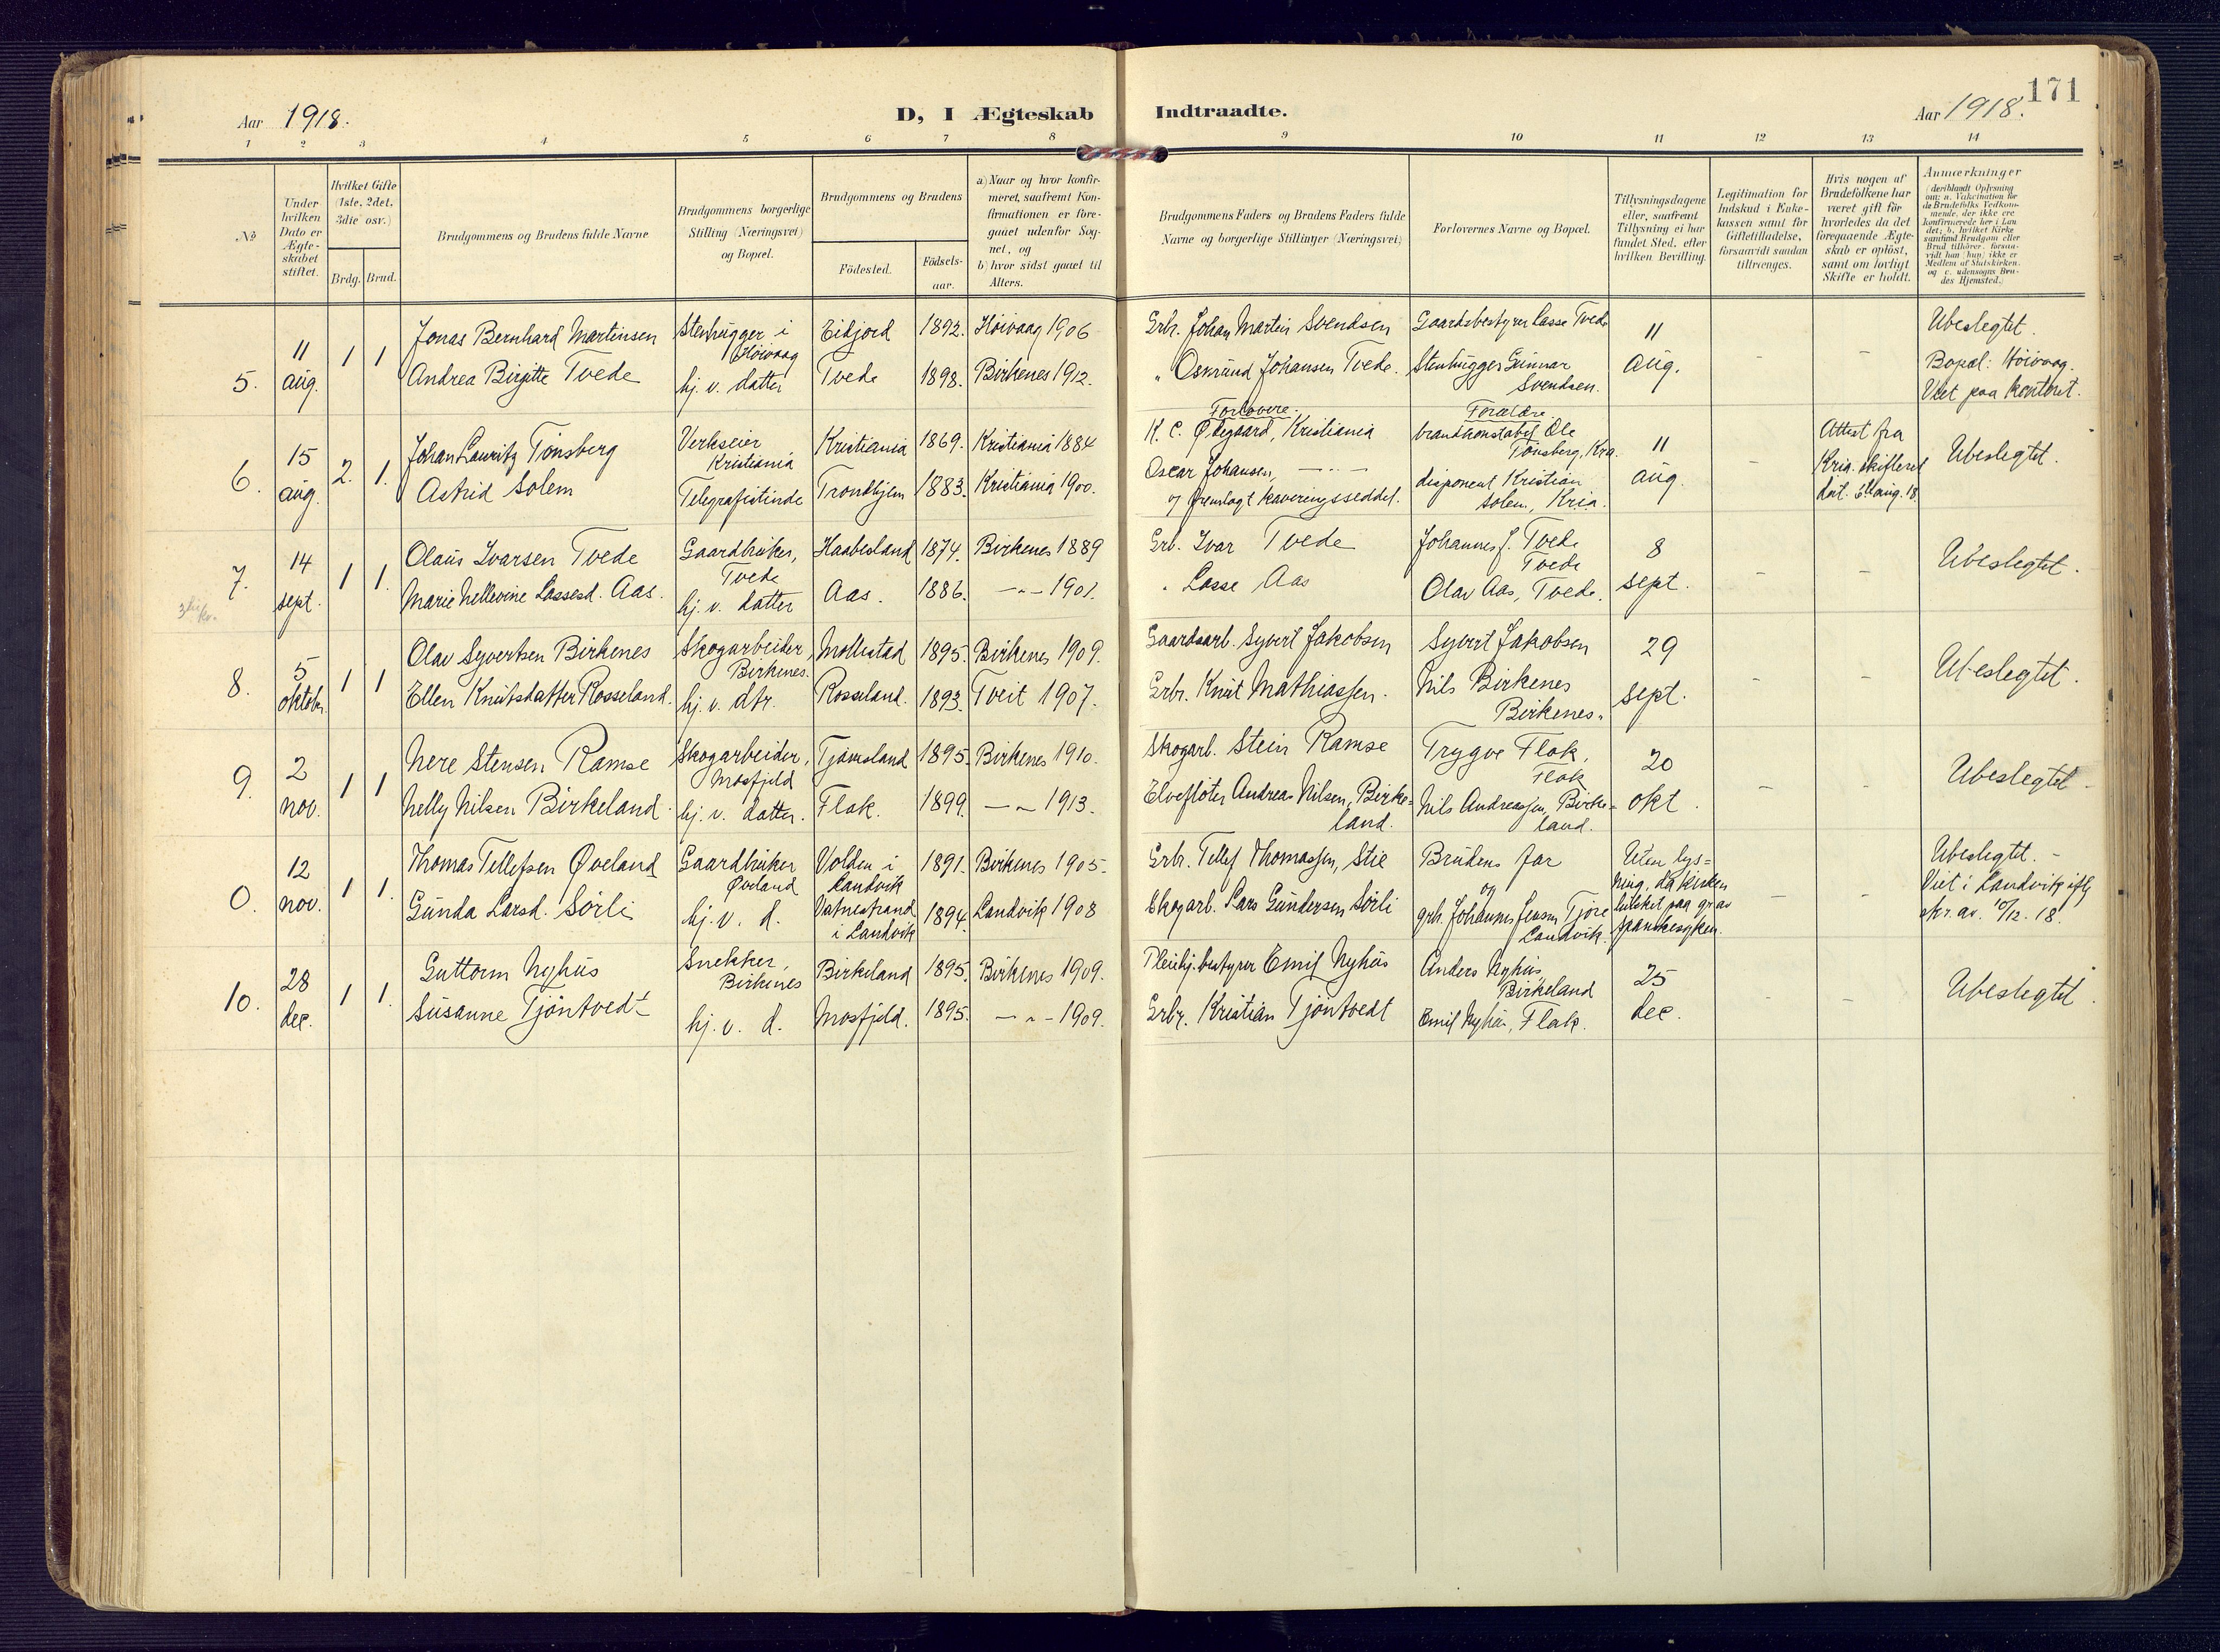 171
Aar 1918.
D, I Ægteskab Indtraadte.
Aar 1918.
1 2 3 4 5 6 7 8 9 10 11 12 13 14
No
Under hvilken Dato er Ægte-skabet stiftet.
Hvilket Gifte (1ste, 2det, 3die osv.)
Brdg. Brud.
Brudgommens og Brudens fulde Navne
Brudgommens borgerlige Stilling (Næringsvei) og Bopæl.
Brudgommens og Brudens
Födested.
Födsels-aar.
a) Naar og hvor konfir-meret, saafremt Kon-firmationen er fore-gaaet udenfor Sog-net, og
b) hvor sidst gaaet til Alters.
Brudgommens Faders og Brudens Faders fulde Navne og borgerlige Stillinger (Næringsvei)
Forlovernes Navne og Bopæl.
Tillysningsdagene eller, saafremt Tillysning ei har fundet Sted, efter hvilken Bevilling.
Legitimation for Indskud i Enke-kassen samt for Giftetilladelse, forsaavidt saadan tiltrænges.
Hvis nogen af Brudefolkene har været gift för hvorledes da det foregaaende Ægte-skab er oplöst, samt om lovligt Skifte er holdt.
Anmærkninger
(deriblandt Oplysning om: a. Vakcination for de Brudefolks Vedkom-mende, der ikke ere konfirmerede her i Lan det; b. hvilket Kirke samfund Brudgom eller Brud tilhörer, forsaa-vidt han (hun) ikke er Medlem af Statskirken, og c. udensogns Bru-des Hjemsted.)
5. 11 aug. 1 1
Jonas Bernhard Martinsen
Stenhugger i Höivaag
Eidjord 1892. Höivaag 1906
Grbr. Johan Martin Svendsen
Gaardsbestyrer Lasse Tvede
11 aug. - -
Ubeslegtet.
Bopæl: Höivaag.
Viet paa kontoret.
Andrea Birgitte Tvede
hj. v. datter
Tvede 1898. Birkenes 1912.
" Osmund Johansen Tvede.
Stenhugger Gunnar Svendsen.
6. 15 aug. 2. 1.
Johan Lauritz Tönsberg
Verkseier Kristiania
Kristiania 1869. Kristiania 1884
Forlovere.
K. C. Ødegaard, Kristiania
Forældre.
brandkonstabel Ole Tönsberg, Kra.
11 aug. -
Attest fra Kria. skifteret dat. aug. 18
Ubeslegtet.
Astrid Solem
Telegrafistinde
Trondhjem 1883. Kristiania 1900.
Oscar Johansen, — " —
og fremlagt kaveringsseddel.
disponent Kristian Solem, Kria.
7. 14 sept. 1 1.
Olaus Ivarsen Tvede
Gaardbruker, Tvede
Haabesland 1874. Birkenes 1889
Grb. Ivar Tvede
Johannes J. Tvede Tvede
8 sept. - -
Ubeslegtet.
Marie Nellevine Lassesd. Aas.
hj. v. datter
Aas. 1886. — " — 1901.
" Lasse Aas
Olav Aas, Tvede.
8. 5 oktober. 1 1
Olav Syvertsen Birkenes
Skogarbeider, Birkenes.
Mollestad 1895. Birkenes 1909.
Gaardsarb. Syvert Jakobsen
Syvert Jakobsen
29 sept. - -
Ubeslegtet.
Ellen Knutsdatter Rosseland.
hj. v. dtr.
Rosseland. 1893. Tveit 1907.
Grbr. Knut Mathiassen.
Nils Birkenes Birkenes.
9. 2 nov. 1 1
Nere Stensen Ramse
Skogarbeider, Mosfjeld
Tjömesland 1895. Birkenes 1910.
Skogarb. Stein Ramse
Trygve Flak, Flak
20 okt. - -
Ubeslegtet -
Nelly Nilsen Birkeland.
hj. v. datter.
Flak. 1899. — " — 1913.
Elveflöter Andreas Nilsen, Birke=land.
Nils Andreassen, Birke=land.
0. 12 nov. 1 1.
Thomas Tellefsen Øveland
Gaardbruker Øveland
Volden i Landvik 1891. Birkenes 1905.
Grbr. Tellef Thomassen, Stie
Brudens far og
Uten lys=ning, da kirken lukket paa gr. av spanskesyken.
- -
Ubeslegtet. -
Viet i Landvik iflg skr. av 10/12. 18.
Gunda Larsd. Sörli
hj. v. d.
Vatnestrand i Landvik 1894. Landvik 1908
Skogarb. Lars Gundersen Sörli
grb. Johannes Jensen Tjöre Landvik.
10. 28 dec. 1 1.
Guttorm Nyhus
Snekker, Birkenes
Birkeland 1895. Birkenes 1909.
Pleiehj. bestyrer Emil Nyhus
Anders Nyhus, Birkeland
25 dec. - -
Ubeslegtet.
Susanne Tjöntvedt
hj. v. d.
Mosfjeld. 1895. — " — 1909.
Grbr. Kristian Tjöntvedt
Emil Nyhus, Flak.